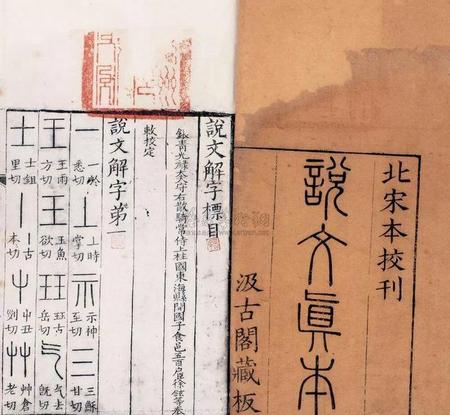 北宋本挍刊
説文眞本
汲古閣藏板
說文解字標目
銀青光祿大夫守右散騎常侍上柱國東海縣開國子食邑五百户臣徐鉉等奉
敕挍定
說文解字第一
一 一於悉切 丄 丄時掌切 示 示神至切 三 三穌甘切
王 王雨方切 玉 玉魚欲切 玨 玨古岳切 气 气去旣切
士 士鉏里切 丨 丨古本切 屮 屮丑列切 艸 艸倉老切